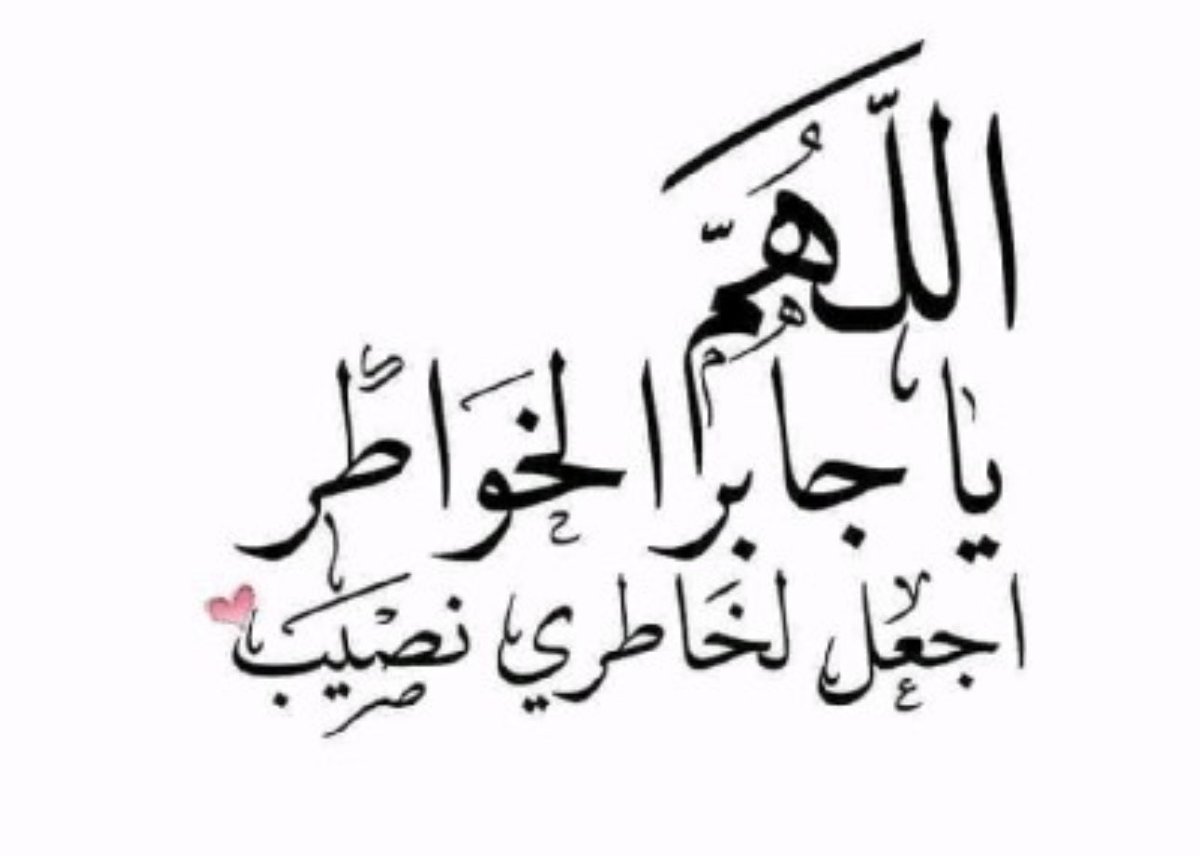 اللّهُمّ
يا جابر الخَواطر
اجعل لخَاطري نصيب